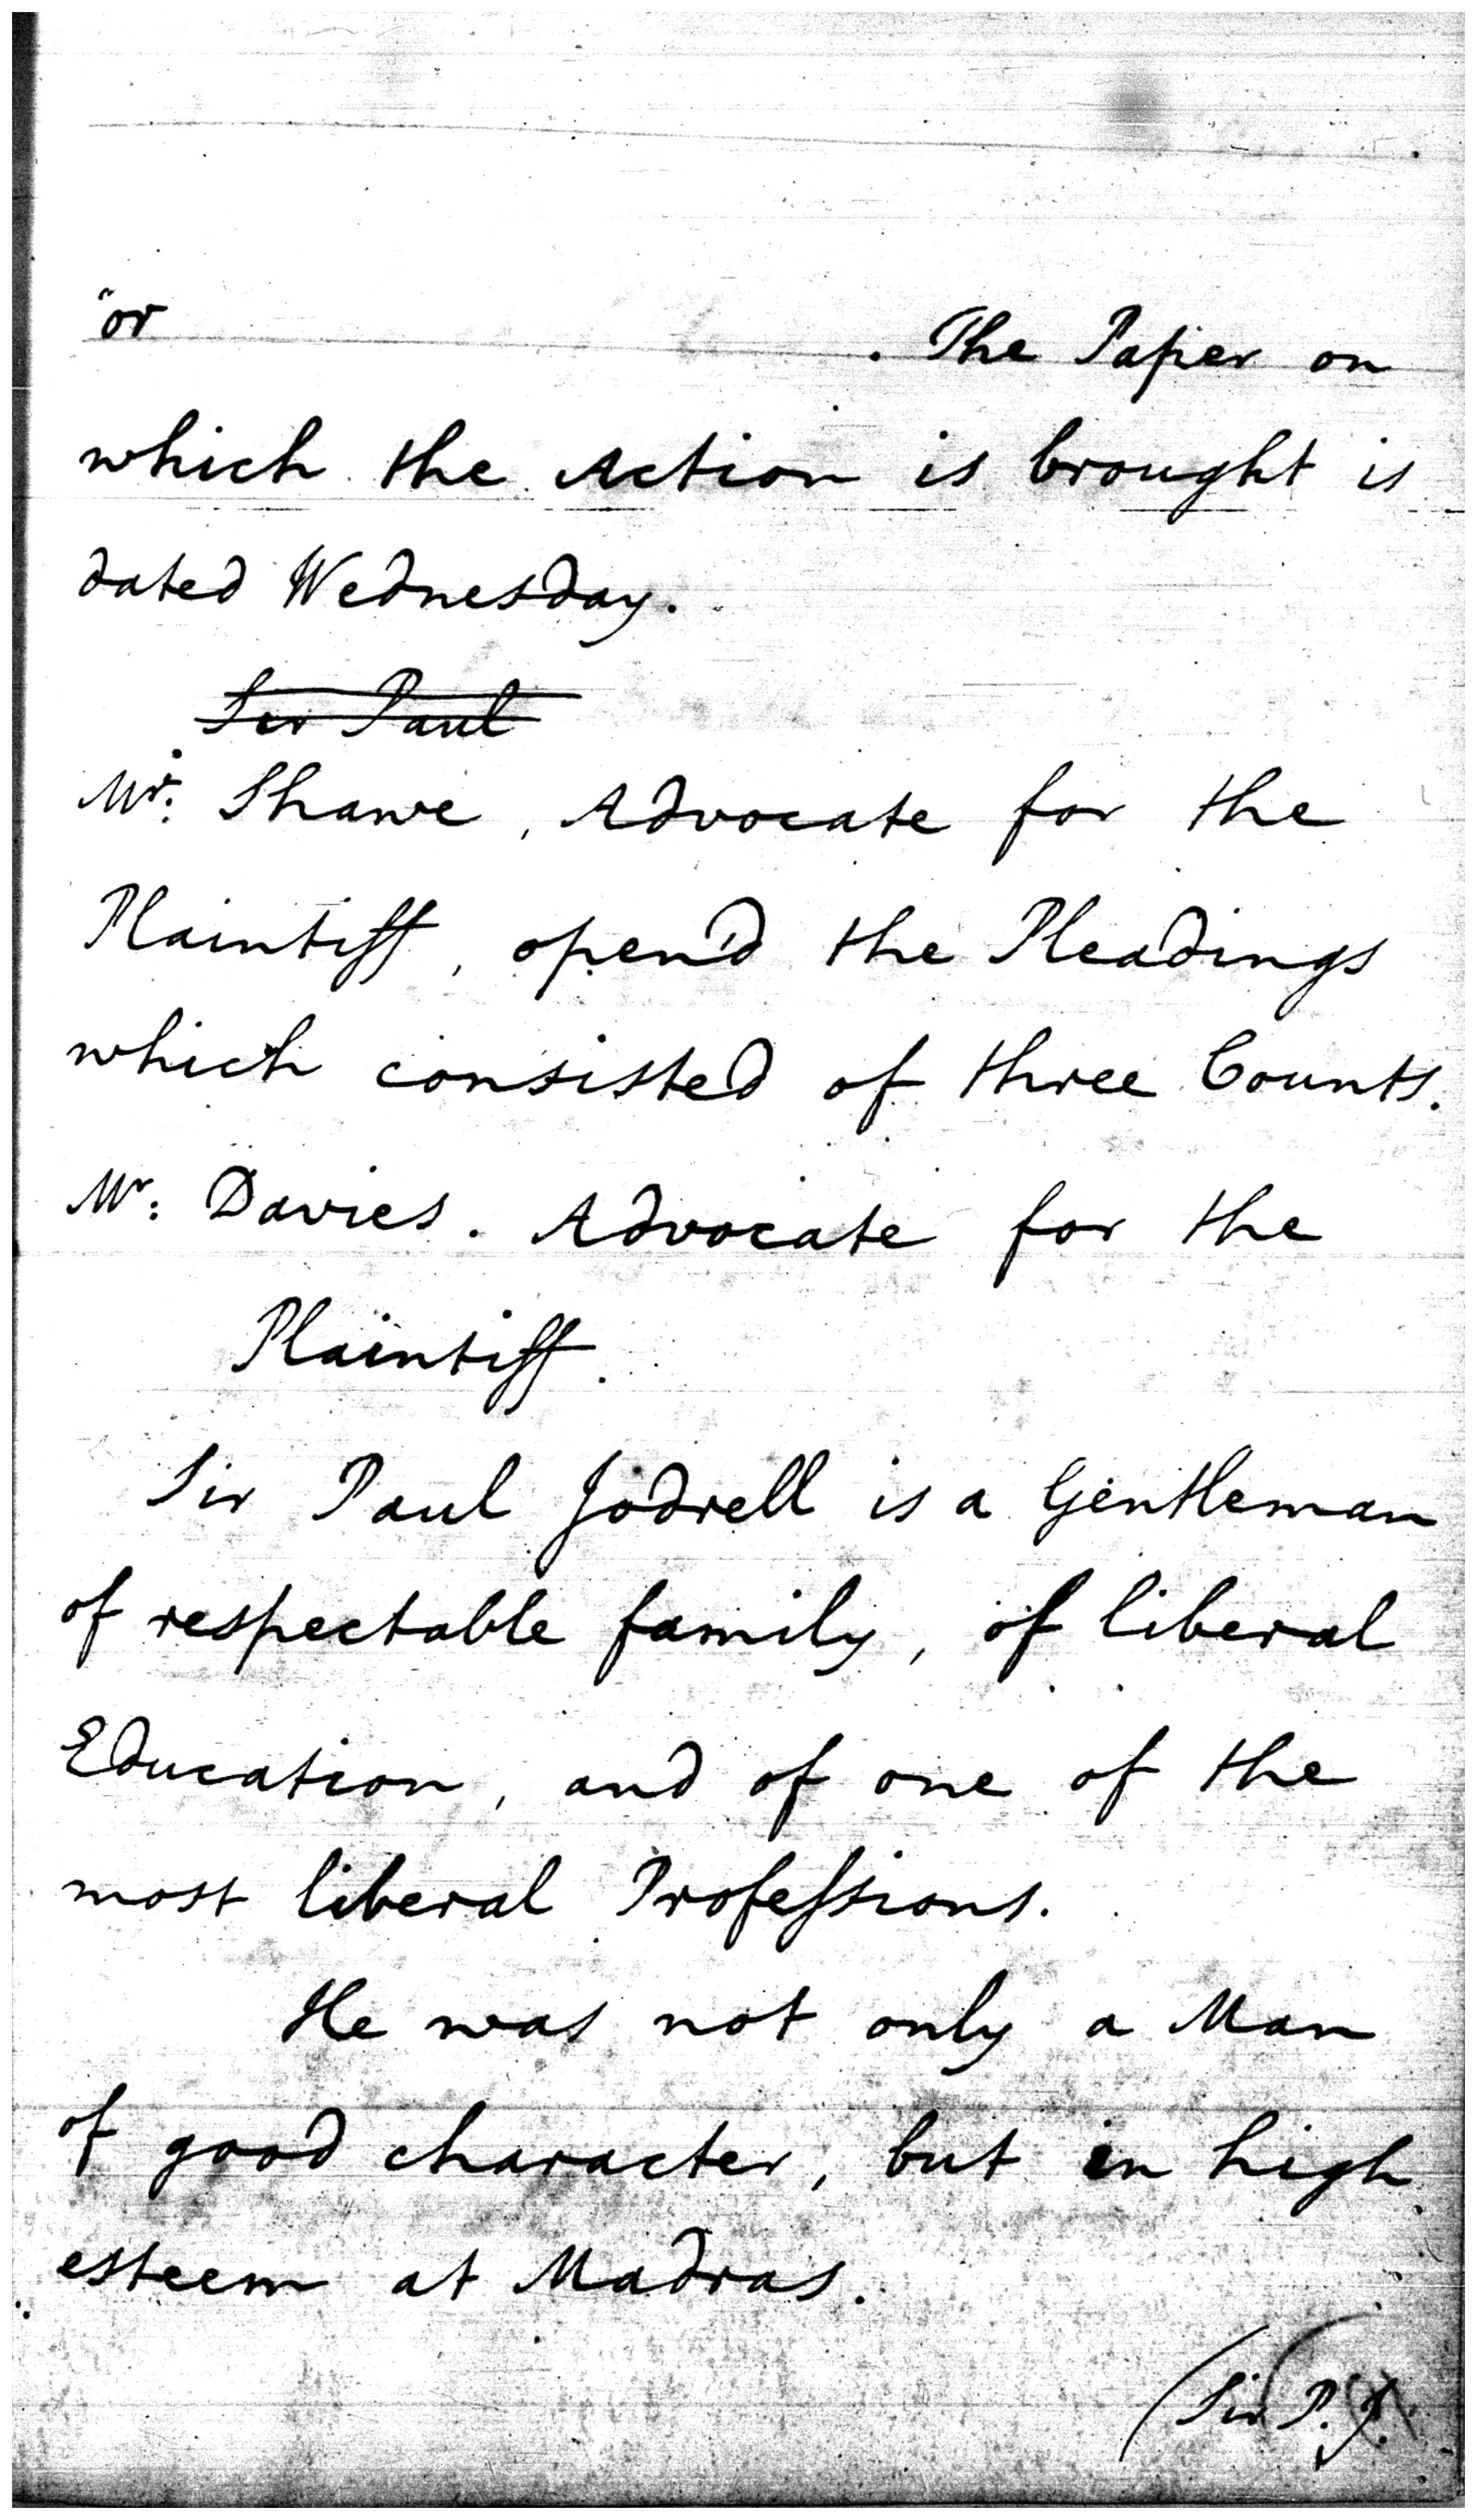 "or . The Paper on
which the Action is brought is
dated Wednesday.
Sir Paul
Mr. Shawe, Advocate for the
Plaintiff, open'd the Pleadings
which consisted of three Counts.
Mr: Davies. Advocate for the
Plaintiff.
Sir Paul Jodrell is a Gentleman
of respectable family, of liberal
Education, and of one of the
most liberal Profeſsions.
He was not only a Man
of good character, but in high
esteem at Madras.
(Sir P. J.